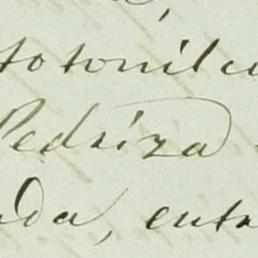 totonilc
Pedriza
da, entr